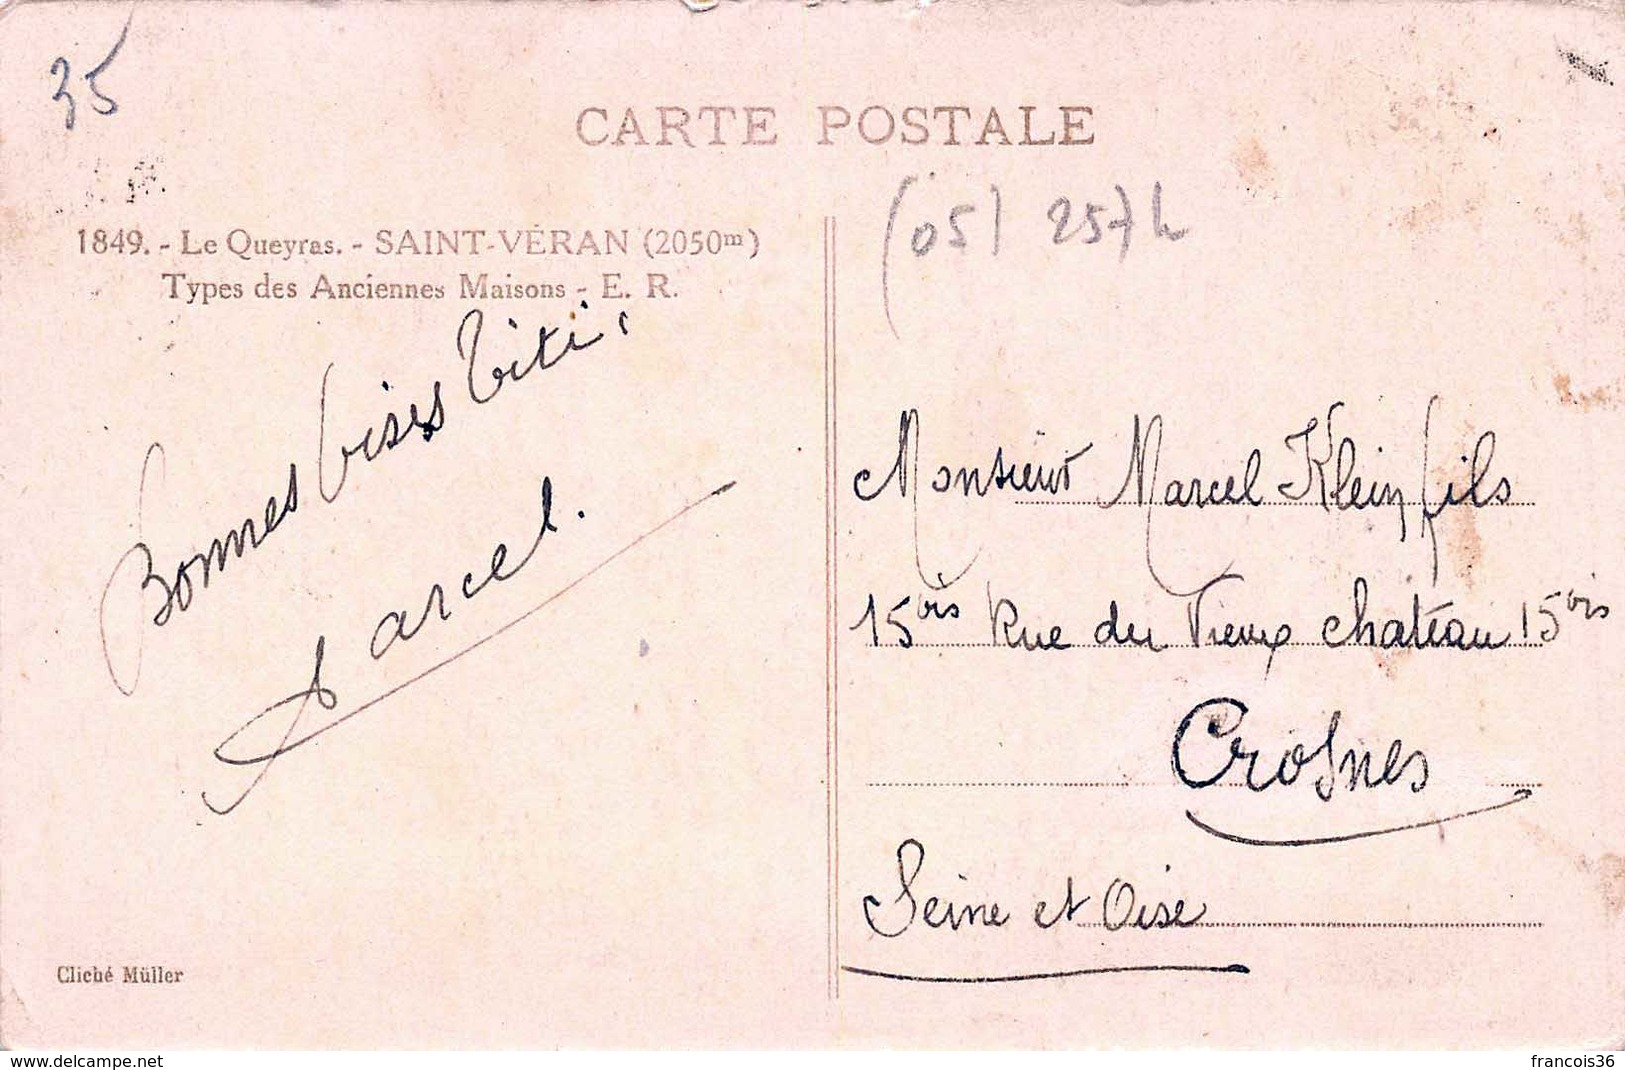 35
CARTE POSTALE
(05) 257h
1849. - Le Queyras. - SAINT-VÉRAN (2050m)
Types des Anciennes Maisons - E. R.
Bonnes bises Titi,
Marcel.
Cliché Müller
Monsieur Marcel Klein fils
15bis Rue du Vieux chateau 15bis
Crosnes
Seine et Oise
www.delcampe.net
francois36